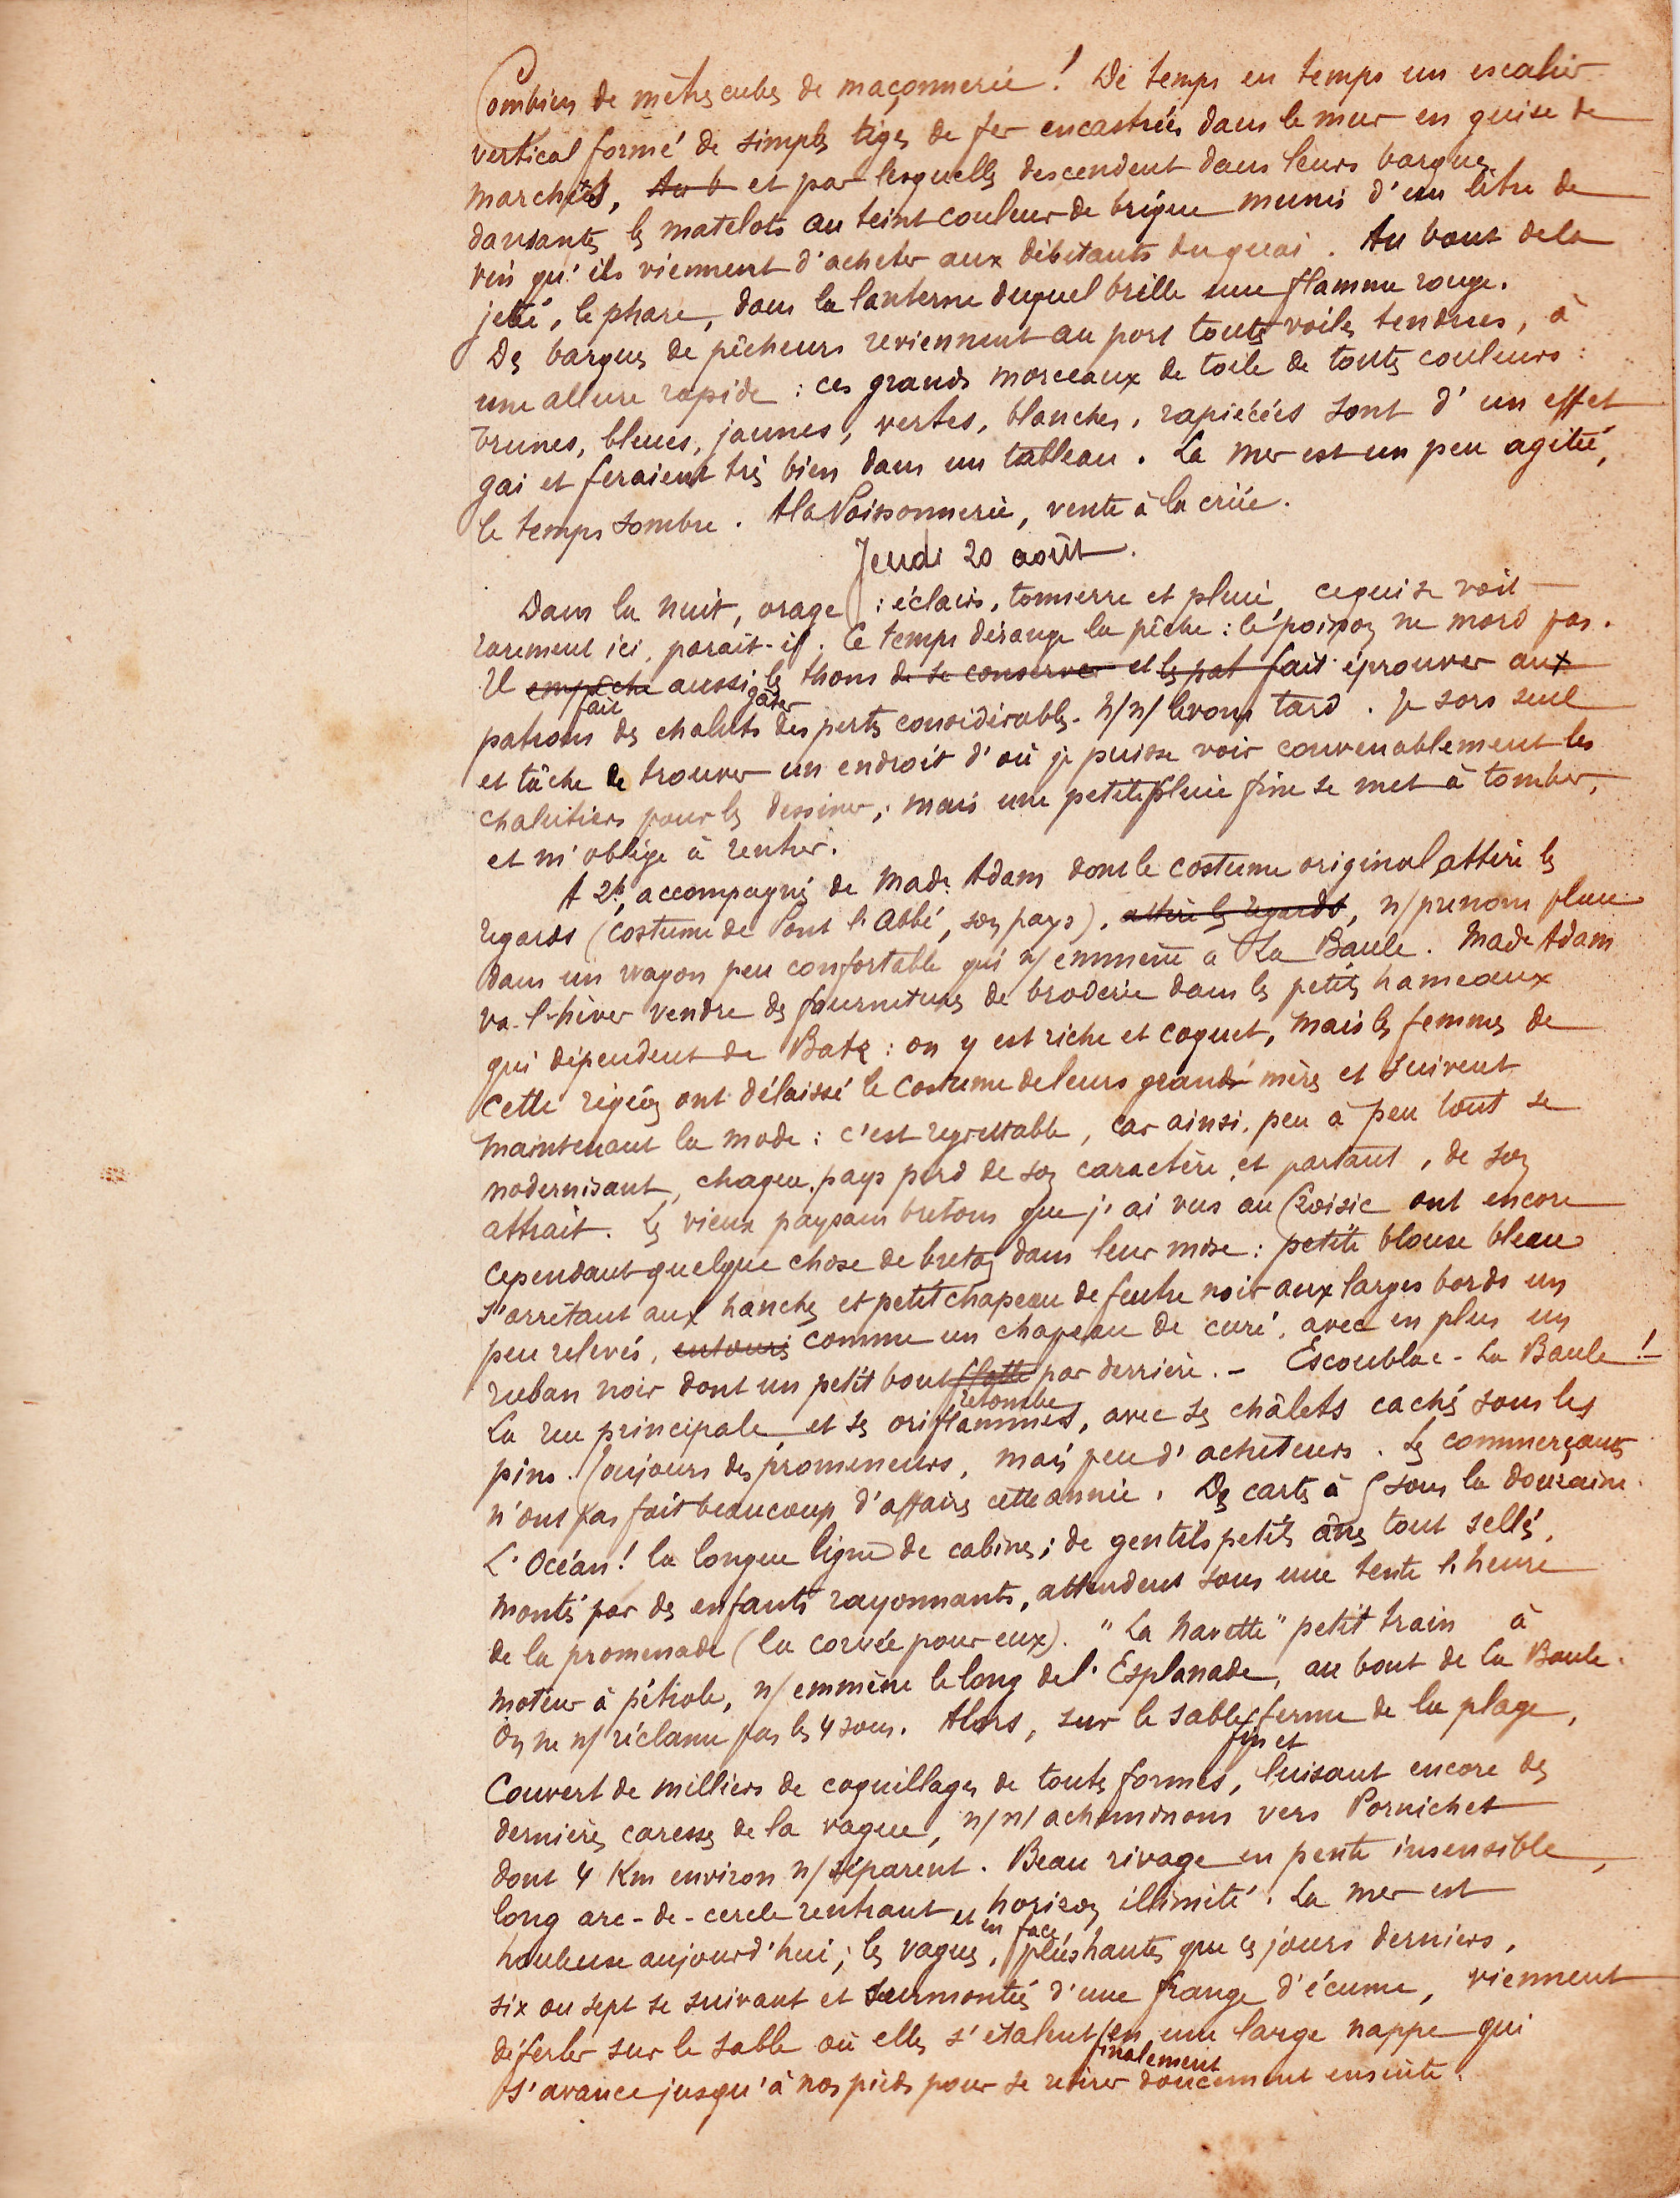 Combien de mètres cubes de maçonnerie ! De temps en temps un escalier
vertical formé de simples tiges de fer encastrées dans le mur en guise de
marches, et par lesquelles descendent dans leurs barques
dansantes les matelots au teint couleur de brique munis d'un litre de
vin qu'ils viennent d'acheter aux débitants du quai. Au bout de la
jetée, le phare, dans la lanterne duquel brille une flamme rouge.
Des barques de pêcheurs reviennent au port toutes voiles tendues, à
une allure rapide : ces grands morceaux de toile de toutes couleurs :
brunes, bleues, jaunes, vertes, blanches, rapiécées sont d'un effet
gai et feraient très bien dans un tableau. La mer est un peu agitée,
le temps sombre. A la Poissonnerie, vente à la criée.
Jeudi 20 août.
Dans la nuit, orage : éclairs, tonnerre et pluie, ce qui se voit
rarement ici, paraît-il. Ce temps dérange la pêche : le poisson ne mord pas.
Il empêche aussi les thons de se conserver et les pat fait éprouver aux
fait gâter
patrons des chaluts des pertes considérables. N/n/ levons tard. Je sors seul
et tâche de trouver un endroit d'où je puisse voir convenablement les
chalutiers pour les dessiner ; mais une petite pluie fine se met à tomber,
et m'oblige à rentrer.
A 2h, accompagnés de Made Adam dont le costume original attire les
regards (costume de Pont l'Abbé, son pays), attire les regards, n/ prenons place
dans un wagon peu confortable qui n/ emmène à La Baule. Made Adam
va l'hiver vendre des fournitures de broderie dans les petits hameaux
qui dépendent de Batz : on y est riche et coquet, mais les femmes de
cette région ont délaissé le costume de leurs grand'mères et suivent
maintenant la mode : c'est regrettable, car ainsi, peu à peu tout se
modernisant, chaque pays perd de son caractère et partant, de son
attrait. Les vieux paysans bretons que j'ai vus au Croisic ont encore
cependant quelque chose de breton dans leur mise : petite blouse bleue
s'arrêtant aux hanches et petit chapeau de feutre noir aux larges bords un
peu relevés, entourés comme un chapeau de curé, avec en plus un
ruban noir dont un petit bout flotte par derrière. - Escoublac - La Baule !
retombe
La rue principale et ses oriflammes, avec ses châlets cachés sous les
pins. Toujours des promeneurs, mais peu d'acheteurs. Les commerçants
n'ont pas fait beaucoup d'affaires cette année. Des cartes à 5 sous la douzaine.
L'Océan ! la longue ligne de cabines ; de gentils petits ânes tout sellés,
montés par des enfants rayonnants, attendent sous une tente l'heure
de la promenade (la corvée pour eux). "La Navette" petit train à
moteur à pétrole, n/ emmène le long de l'Esplanade, au bout de La Baule.
On ne n/ réclame pas les 4 sous. Alors, sur le sable ferme de la plage,
fin et
Couvert de milliers de coquillages de toutes formes, luisant encore des
dernières caresses de la vague, n/n/ acheminons vers Pornichet
dont 4 Km environ n/ séparent. Beau rivage en pente insensible,
long arc-de-cercle rentrant et horizon illimité. La mer est
en face
houleuse aujourd'hui ; les vagues, plus hautes que ces jours derniers,
six ou sept se suivant et surmontées d'une frange d'écume, viennent
déferler sur le sable où elles s'étalent en une large nappe qui
finalement
s'avance jusqu'à nos pieds pour se retirer doucement ensuite.